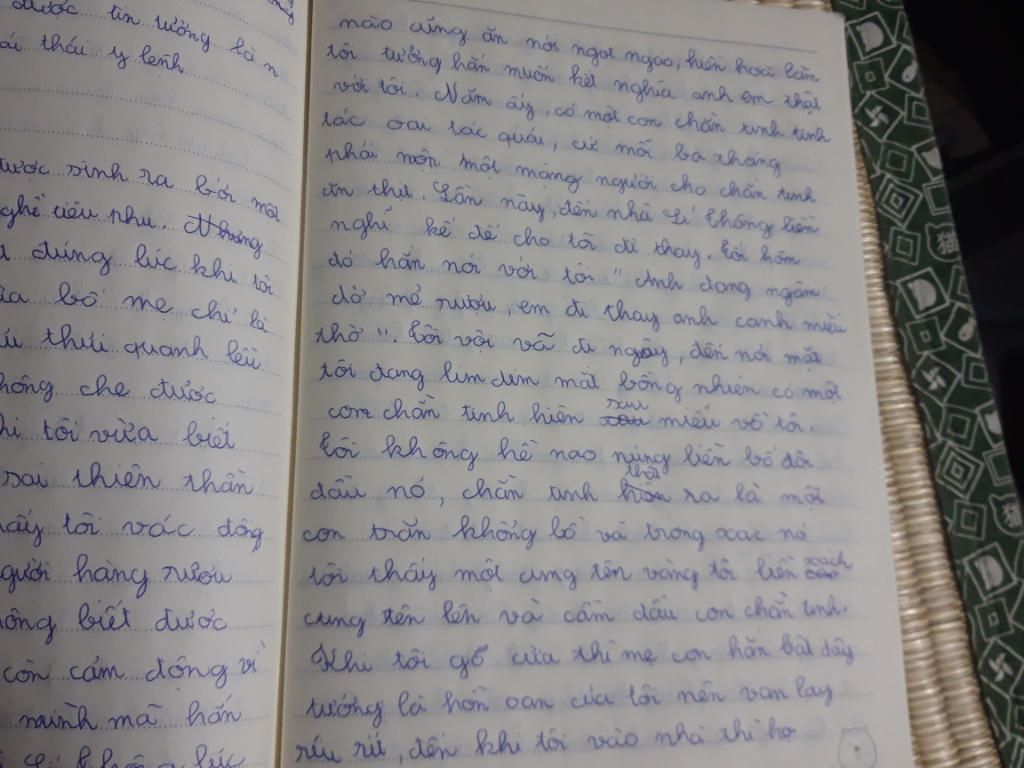 được tin tưởng là n
ái thái y lệnh
được sinh ra bởi một
nghề tiều phu. Nhưng
đúng lúc khi tôi
của bố mẹ chỉ là
túi thui quanh lều
không che được
khi tôi vừa biết
sai thiên thần
thấy tôi vác đông
người hàng rượu
không biết được
còn cảm động vì
mình mà hắn
nào cũng ăn nói ngọt ngào, hiền hoà lắm
tôi tưởng hắn muốn kết nghĩa anh em thật
với tôi. Năm ấy, có một con chằn tinh tinh
tác oai tác quái, cứ mỗi ba tháng
phải nộp một mạng người cho chằn tinh
ăn thịt. Lần này, đến nhà Lí Thông liền
nghĩ kế để cho tôi đi thay. Tối hôm
đó hắn nói với tôi " Anh đang ngâm
dở mẻ rượu, em đi thay anh canh miếu
thờ ". Tôi vội vã đi ngay, đến nới mặt
tôi đang lim dim mắt bỗng nhiên có một
con chằn tinh hiên sau miếu vồ tôi.
Tôi không hề nao núng liền bổ đôi
đầu nó, chằn tinh thật ra là một
con trăn khổng lồ và trong xác nó
tôi thấy một cung tên vàng tôi liền xách
cung tên lên và cầm đầu con chằn tinh.
Khi tôi gõ cửa thì mẹ con hắn bật dậy
tưởng là hồn oan của tôi nên van lạy
ríu rít, đến khi tôi vào nhà thì họ